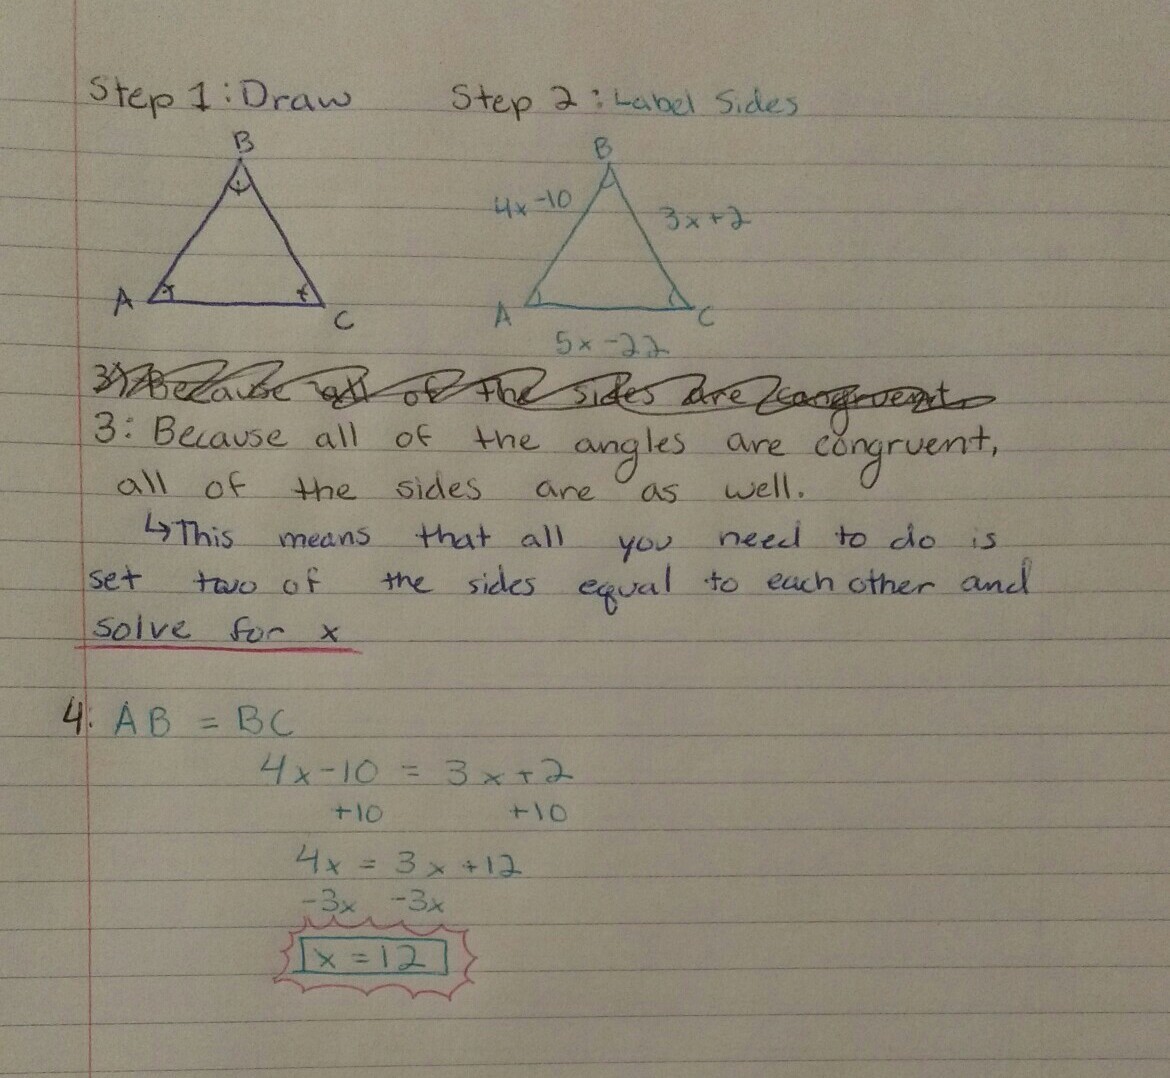 Step 1: Draw
Step 2: Label Sides
B
A
C
B
4x-10
3x+2
A
C
5x-22
3) Because all of the sides are congruent
3: Because all of the angles are congruent,
all of the sides are as well.
↳This means that all you need to do is
set two of the sides equal to each other and
solve for x
4: AB = BC
4x-10 = 3x+2
+10 +10
4x = 3x+12
-3x -3x
x=12